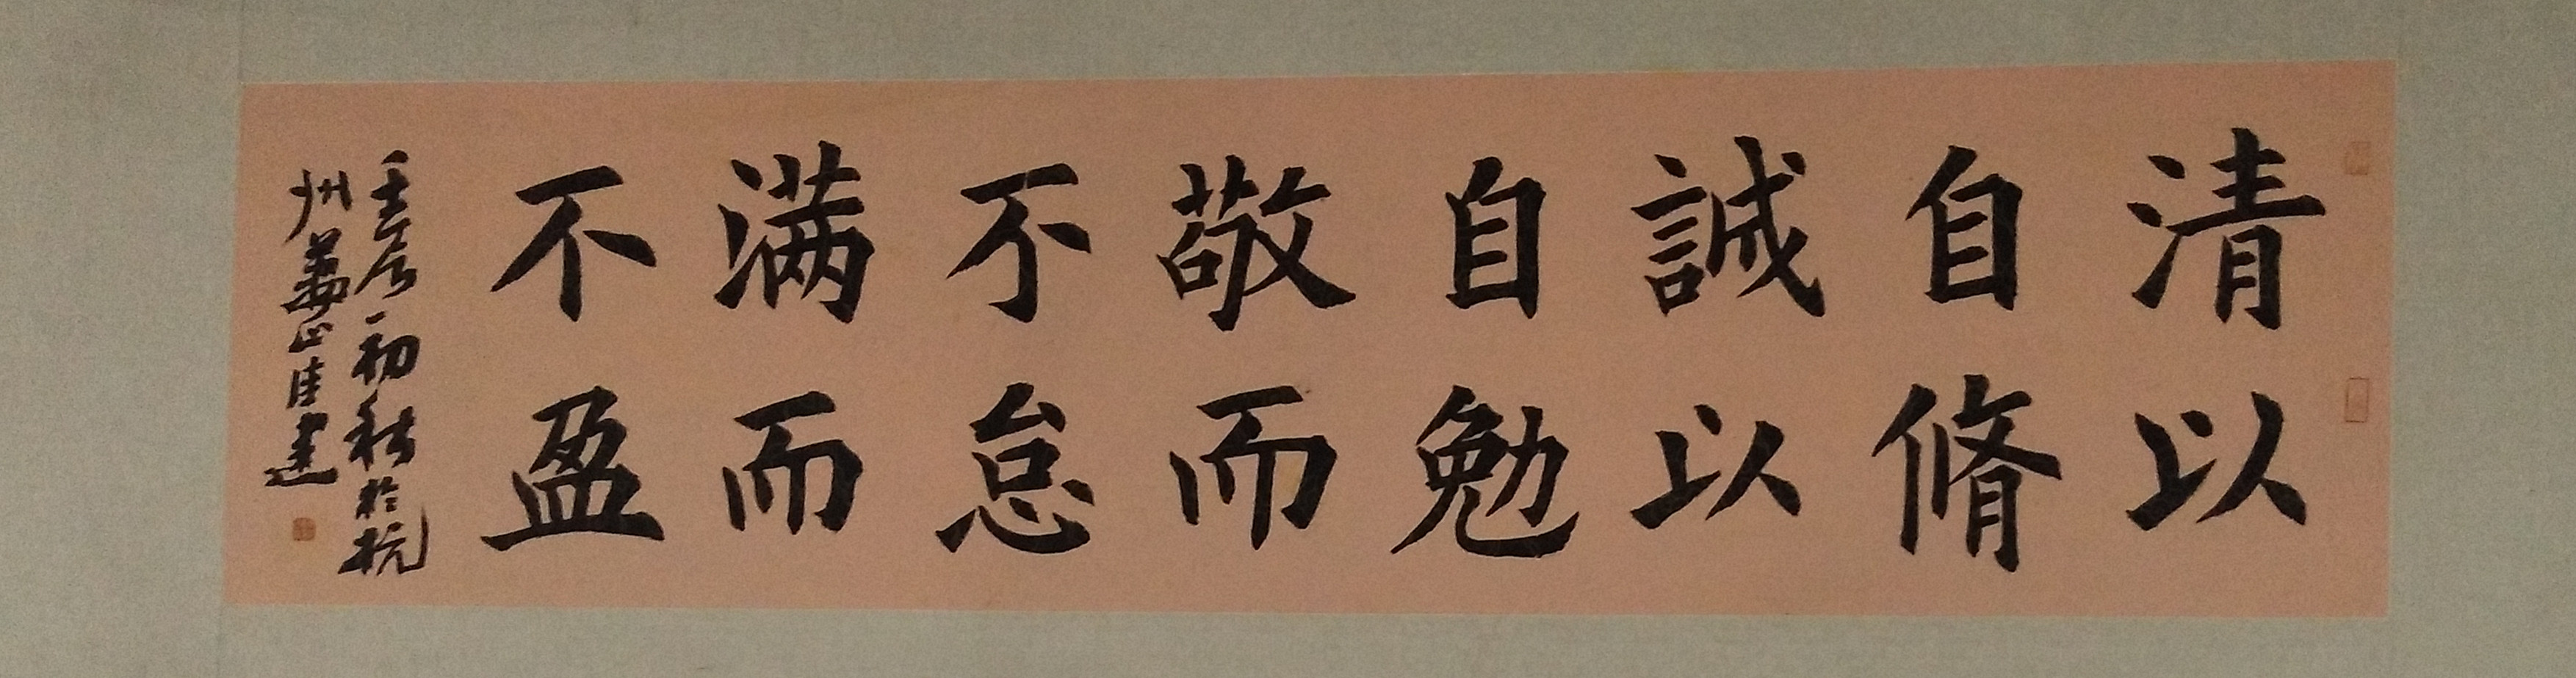 清以
自脩
誠以
自勉
敬而
不怠
满而
不盈
壬辰初秋於杭
州